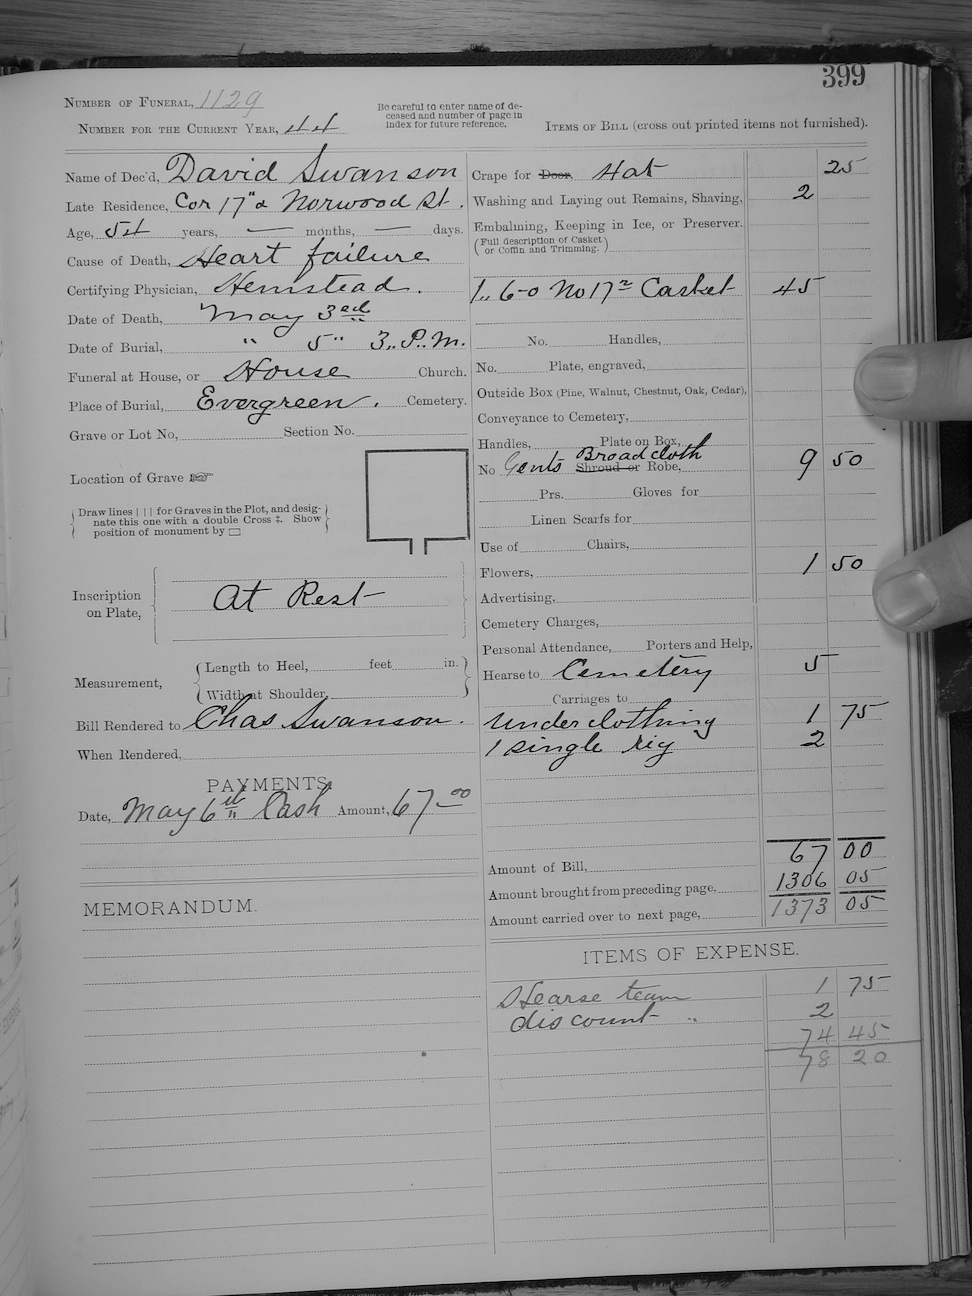 399
NUMBER OF FUNERAL, 1129
NUMBER FOR THE CURRENT YEAR, 44
Be careful to enter name of de-
ceased and number of page in
index for future reference.
ITEMS OF BILL (cross out printed items not furnished).
Name of Dec'd, David Swanson
Late Residence, Cor 17" & Norwood St.
Age, 54 years, — months, — days.
Cause of Death, Heart failure
Certifying Physician, Hemstead.
Date of Death, May 3rd
Date of Burial, " 5" 3,, P.M.
Funeral at House, or House Church.
Place of Burial, Evergreen. Cemetery.
Grave or Lot No, Section No.
Location of Grave ☞
Draw lines | | | for Graves in the Plot, and desig-
nate this one with a double Cross ‡. Show
position of monument by ▭
Inscription
on Plate,
At Rest
Measurement,
Length to Heel, feet in.
Width at Shoulder,
Bill Rendered to Chas Swanson.
When Rendered,
PAYMENTS.
Date, May 6th Cash Amount, 67.00
MEMORANDUM.
Crape for Door, Hat 25
Washing and Laying out Remains, Shaving, 2
Embalming, Keeping in Ice, or Preserver.
(Full description of Casket
or Coffin and Trimming.)
1,, 6-0 No 17 Casket 45
No. Handles,
No. Plate, engraved,
Outside Box (Pine, Walnut, Chestnut, Oak, Cedar),
Conveyance to Cemetery,
Handles, Plate on Box,
No Gents Broadcloth Shroud or Robe, 9 50
Prs. Gloves for
Linen Scarfs for
Use of Chairs,
Flowers, 1 50
Advertising,
Cemetery Charges,
Personal Attendance, Porters and Help,
Hearse to Cemetery 5
Carriages to
Underclothing 1 75
1 single rig 2
Amount of Bill, 67 00
Amount brought from preceding page, 1306 05
Amount carried over to next page, 1373 05
ITEMS OF EXPENSE.
Hearse team 1 75
discount " 2
74 45
78 20